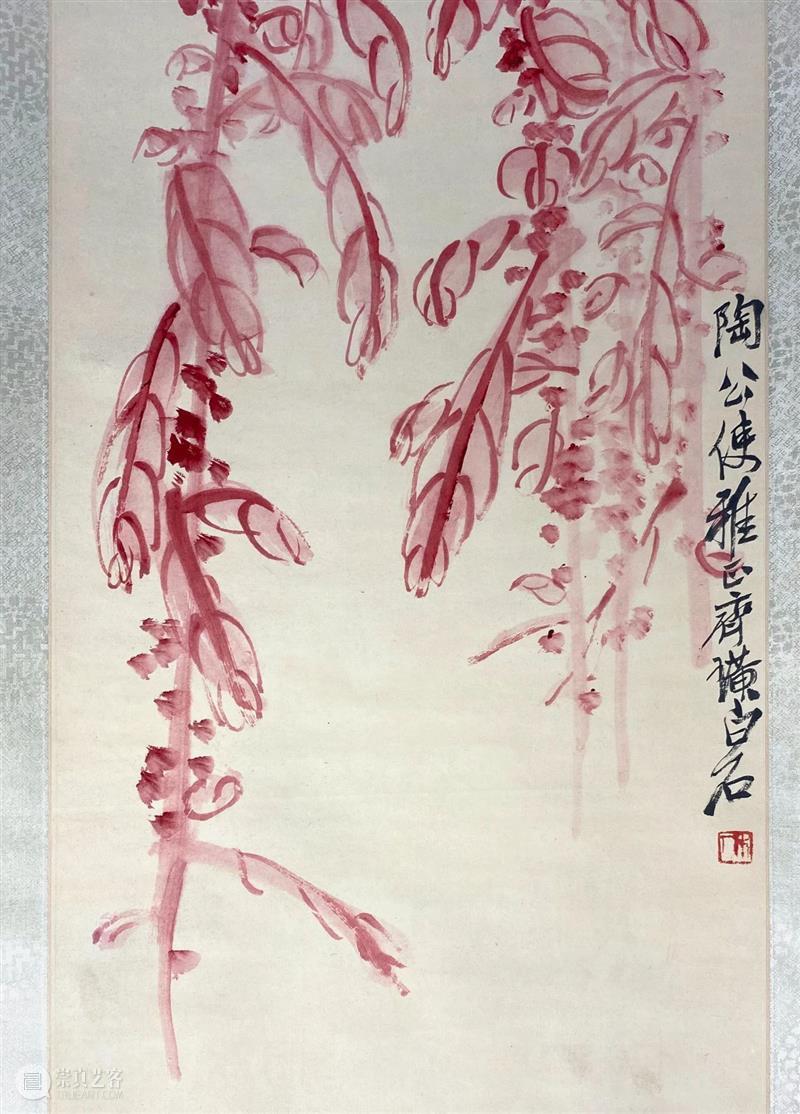 陶公使雅正齊璜白石
崇真艺客
TRUEART.COM